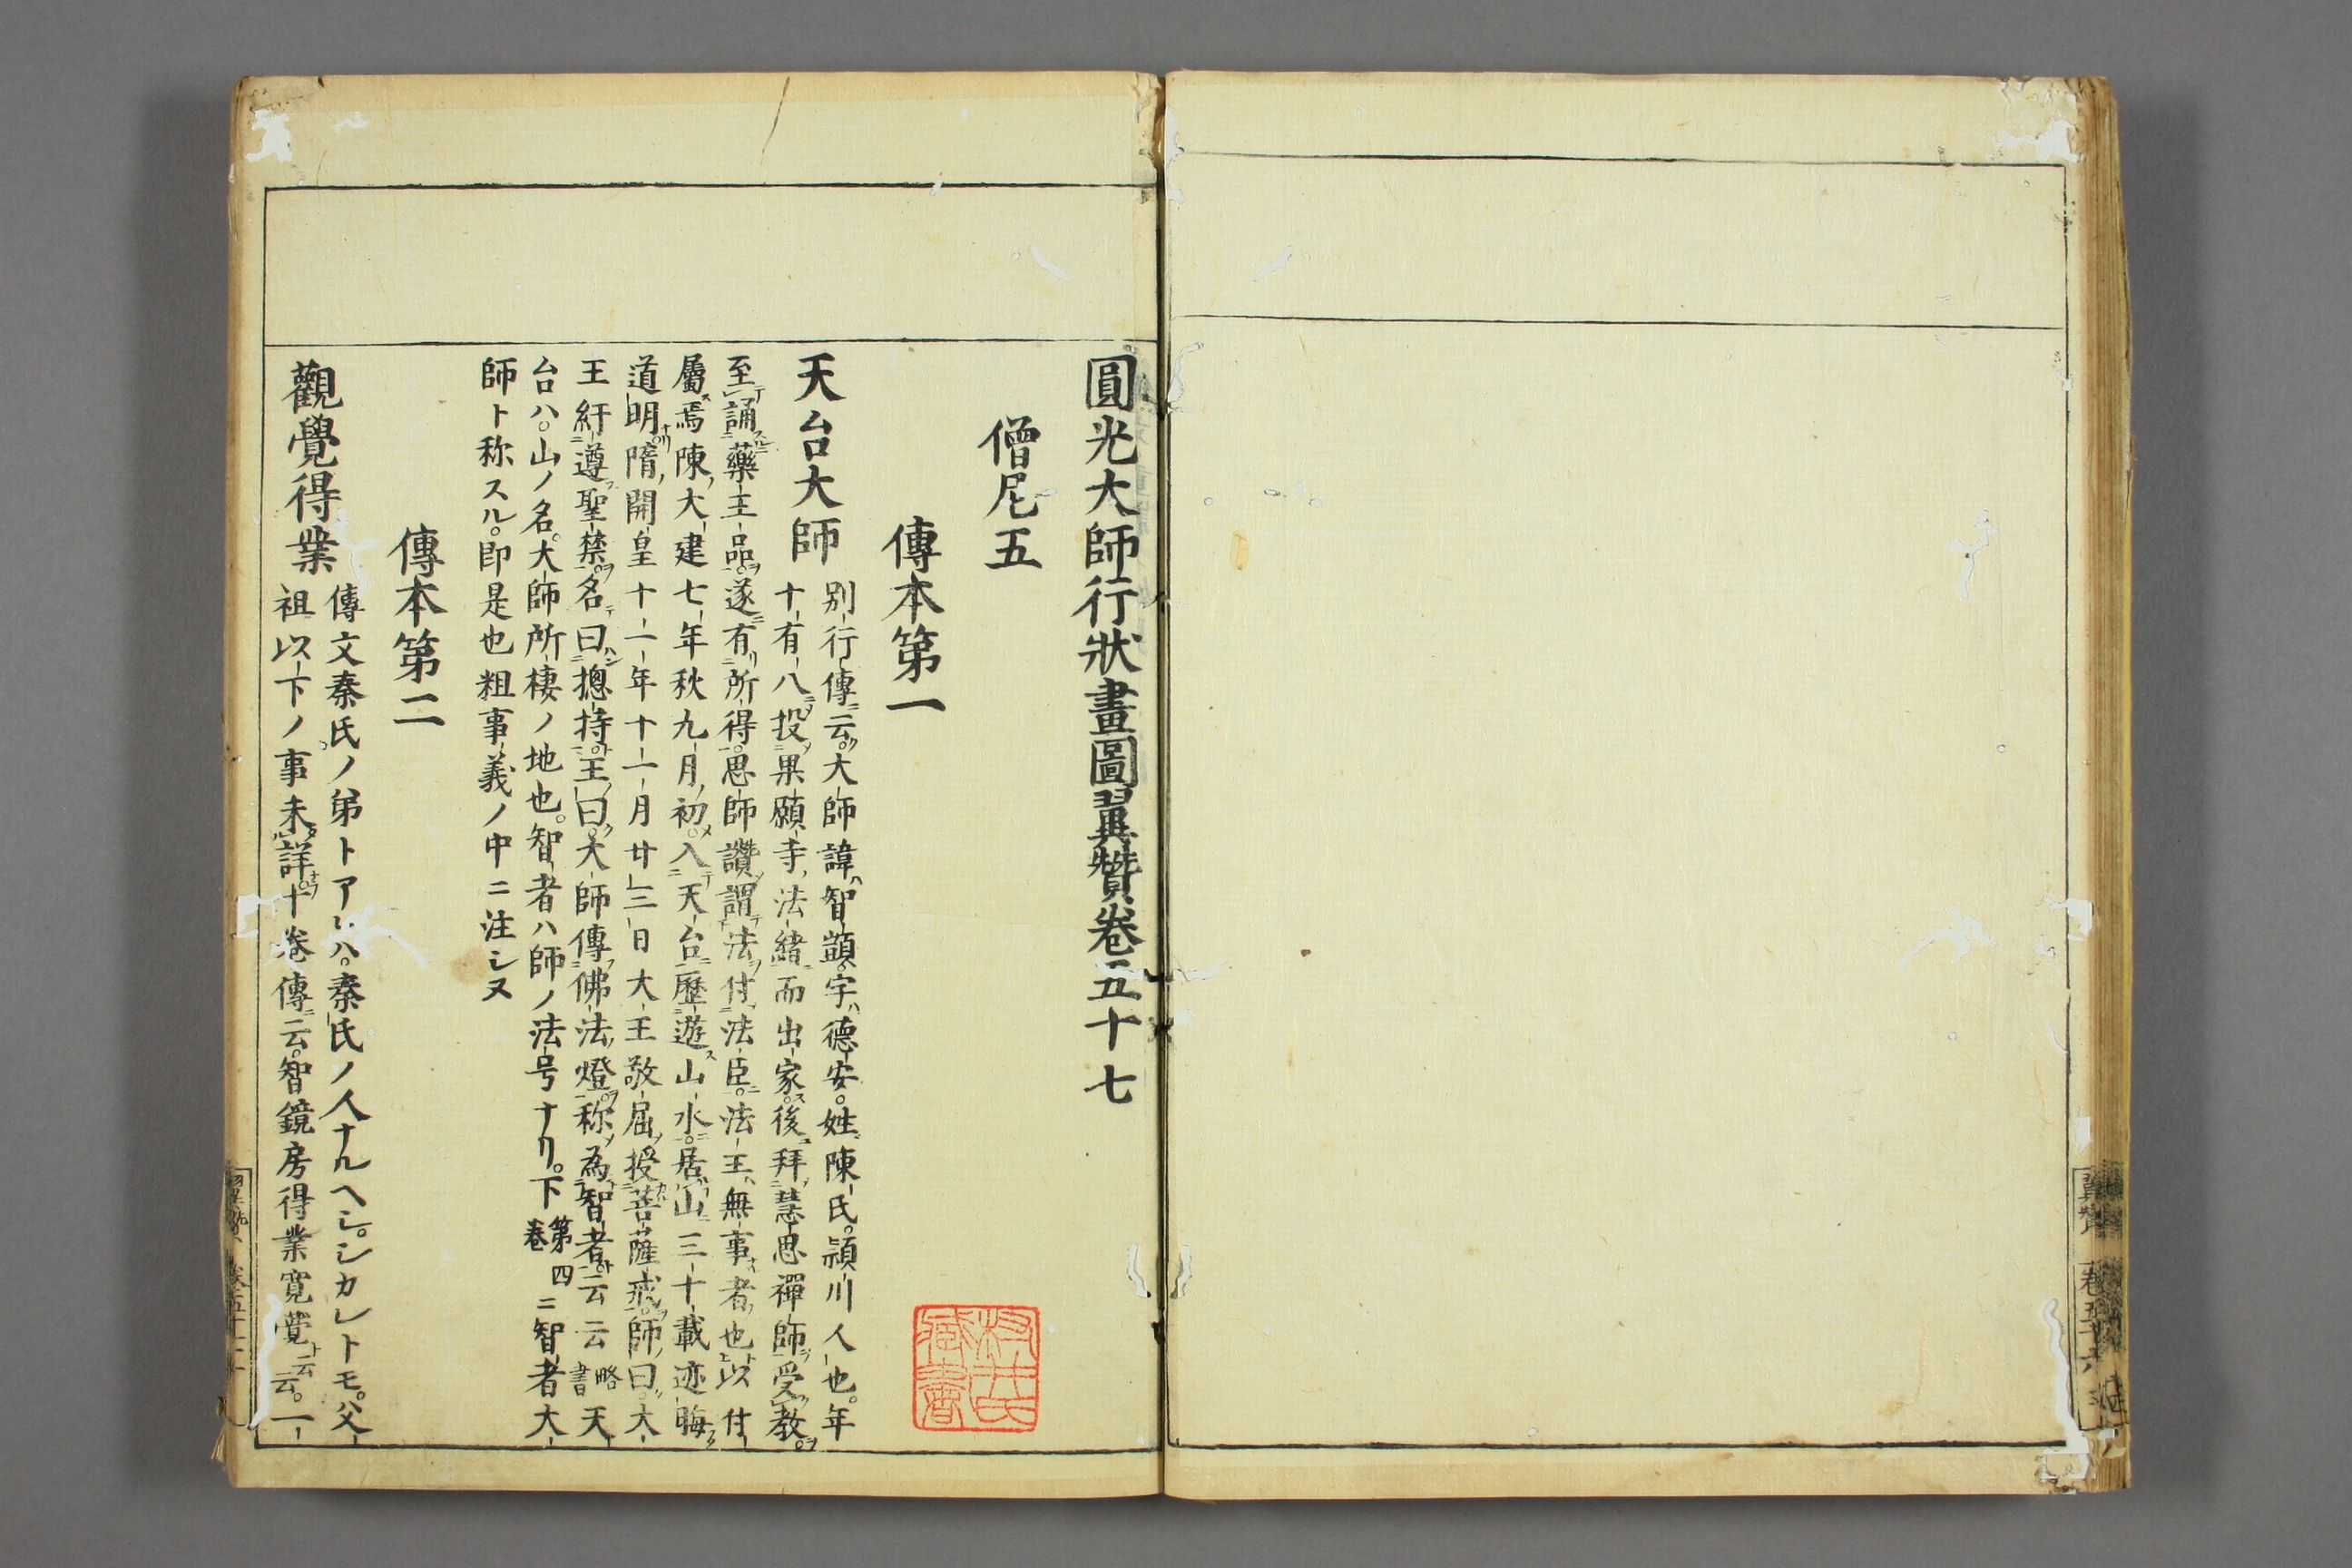 圓光大師行狀畫圖翼贊卷五十七
僧尼五
傳本第一
天台大師
別行傳云大師諱智顗字德安。姓陳氏。頴川人也。年
十有八投果願寺法緒而出家。後拜慧思禪師受教。
至誦藥王品。遂有所得。思師讚謂法付法臣。法王無事者也以付
屬焉陳大建七年秋九月初入天台歷遊山水。居山三十載迹晦
道明隋開皇十一年十一月廿三日大王敬屈授菩薩戒。師曰大
王紆遵聖禁。名曰摠持。王曰。大師傳佛法燈。称為智者。云云 略書 天
台ハ。山ノ名。大師所棲ノ地也。智者ハ師ノ法号ナリ。下 第四卷 ニ智者大
師ト称スル。即是也粗事義ノ中ニ注シヌ
傳本第二
觀覺得業
傳文秦氏ノ弟トアルハ。秦氏ノ人ナルヘシ。シカレトモ。父
祖以下ノ事未詳。十卷傳云。智鏡房得業寛覺云云。一
翼贊 卷五十六